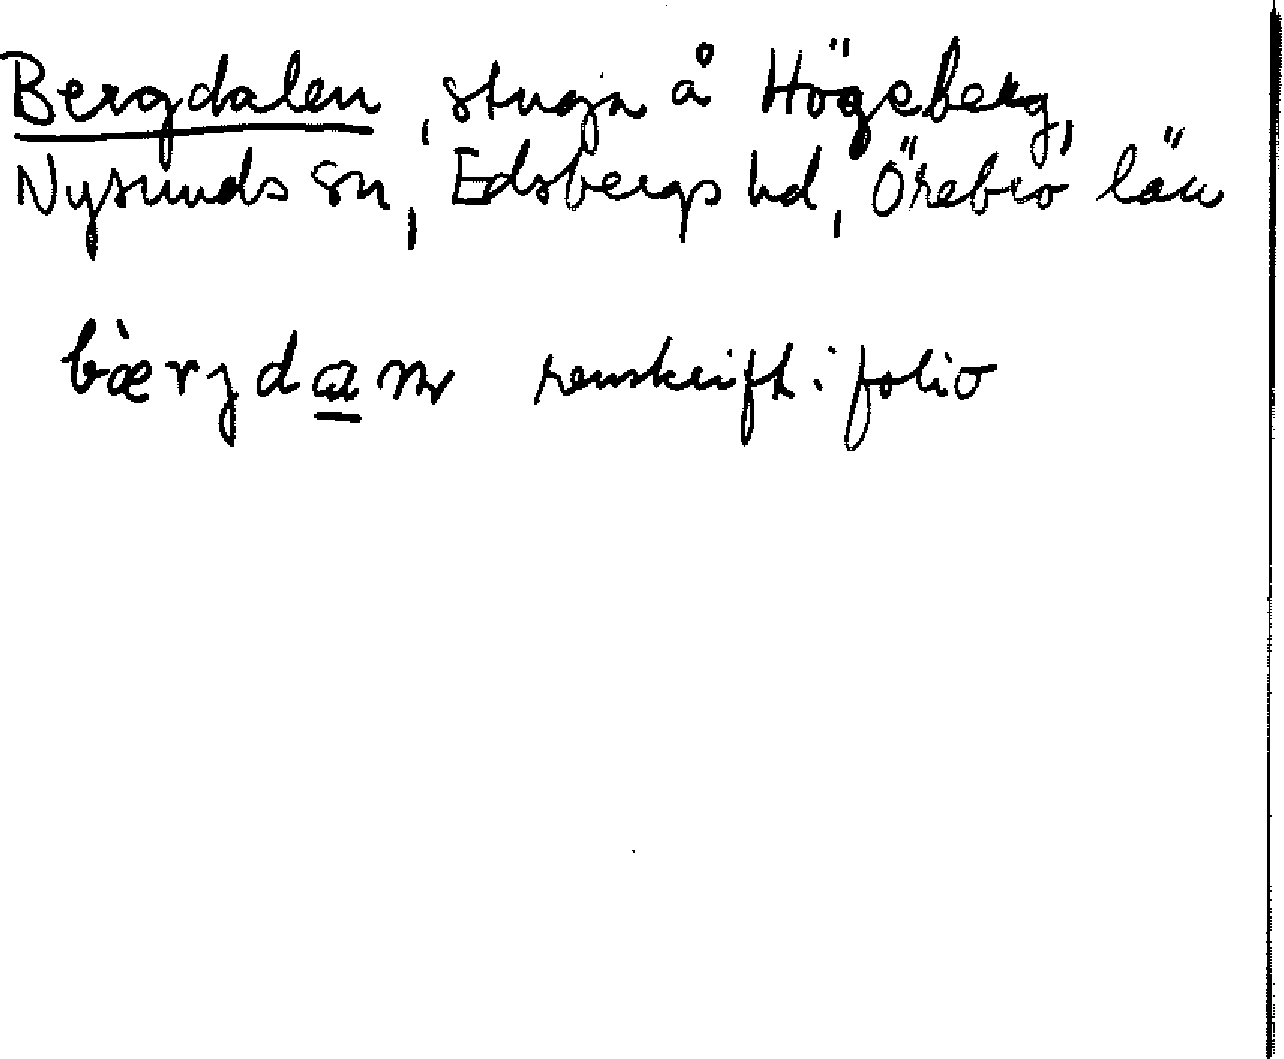 Bergdalen, stuga å Högsberg,
Nysunds sn, Edsbergs hd, Örebro län
renskrift i folio